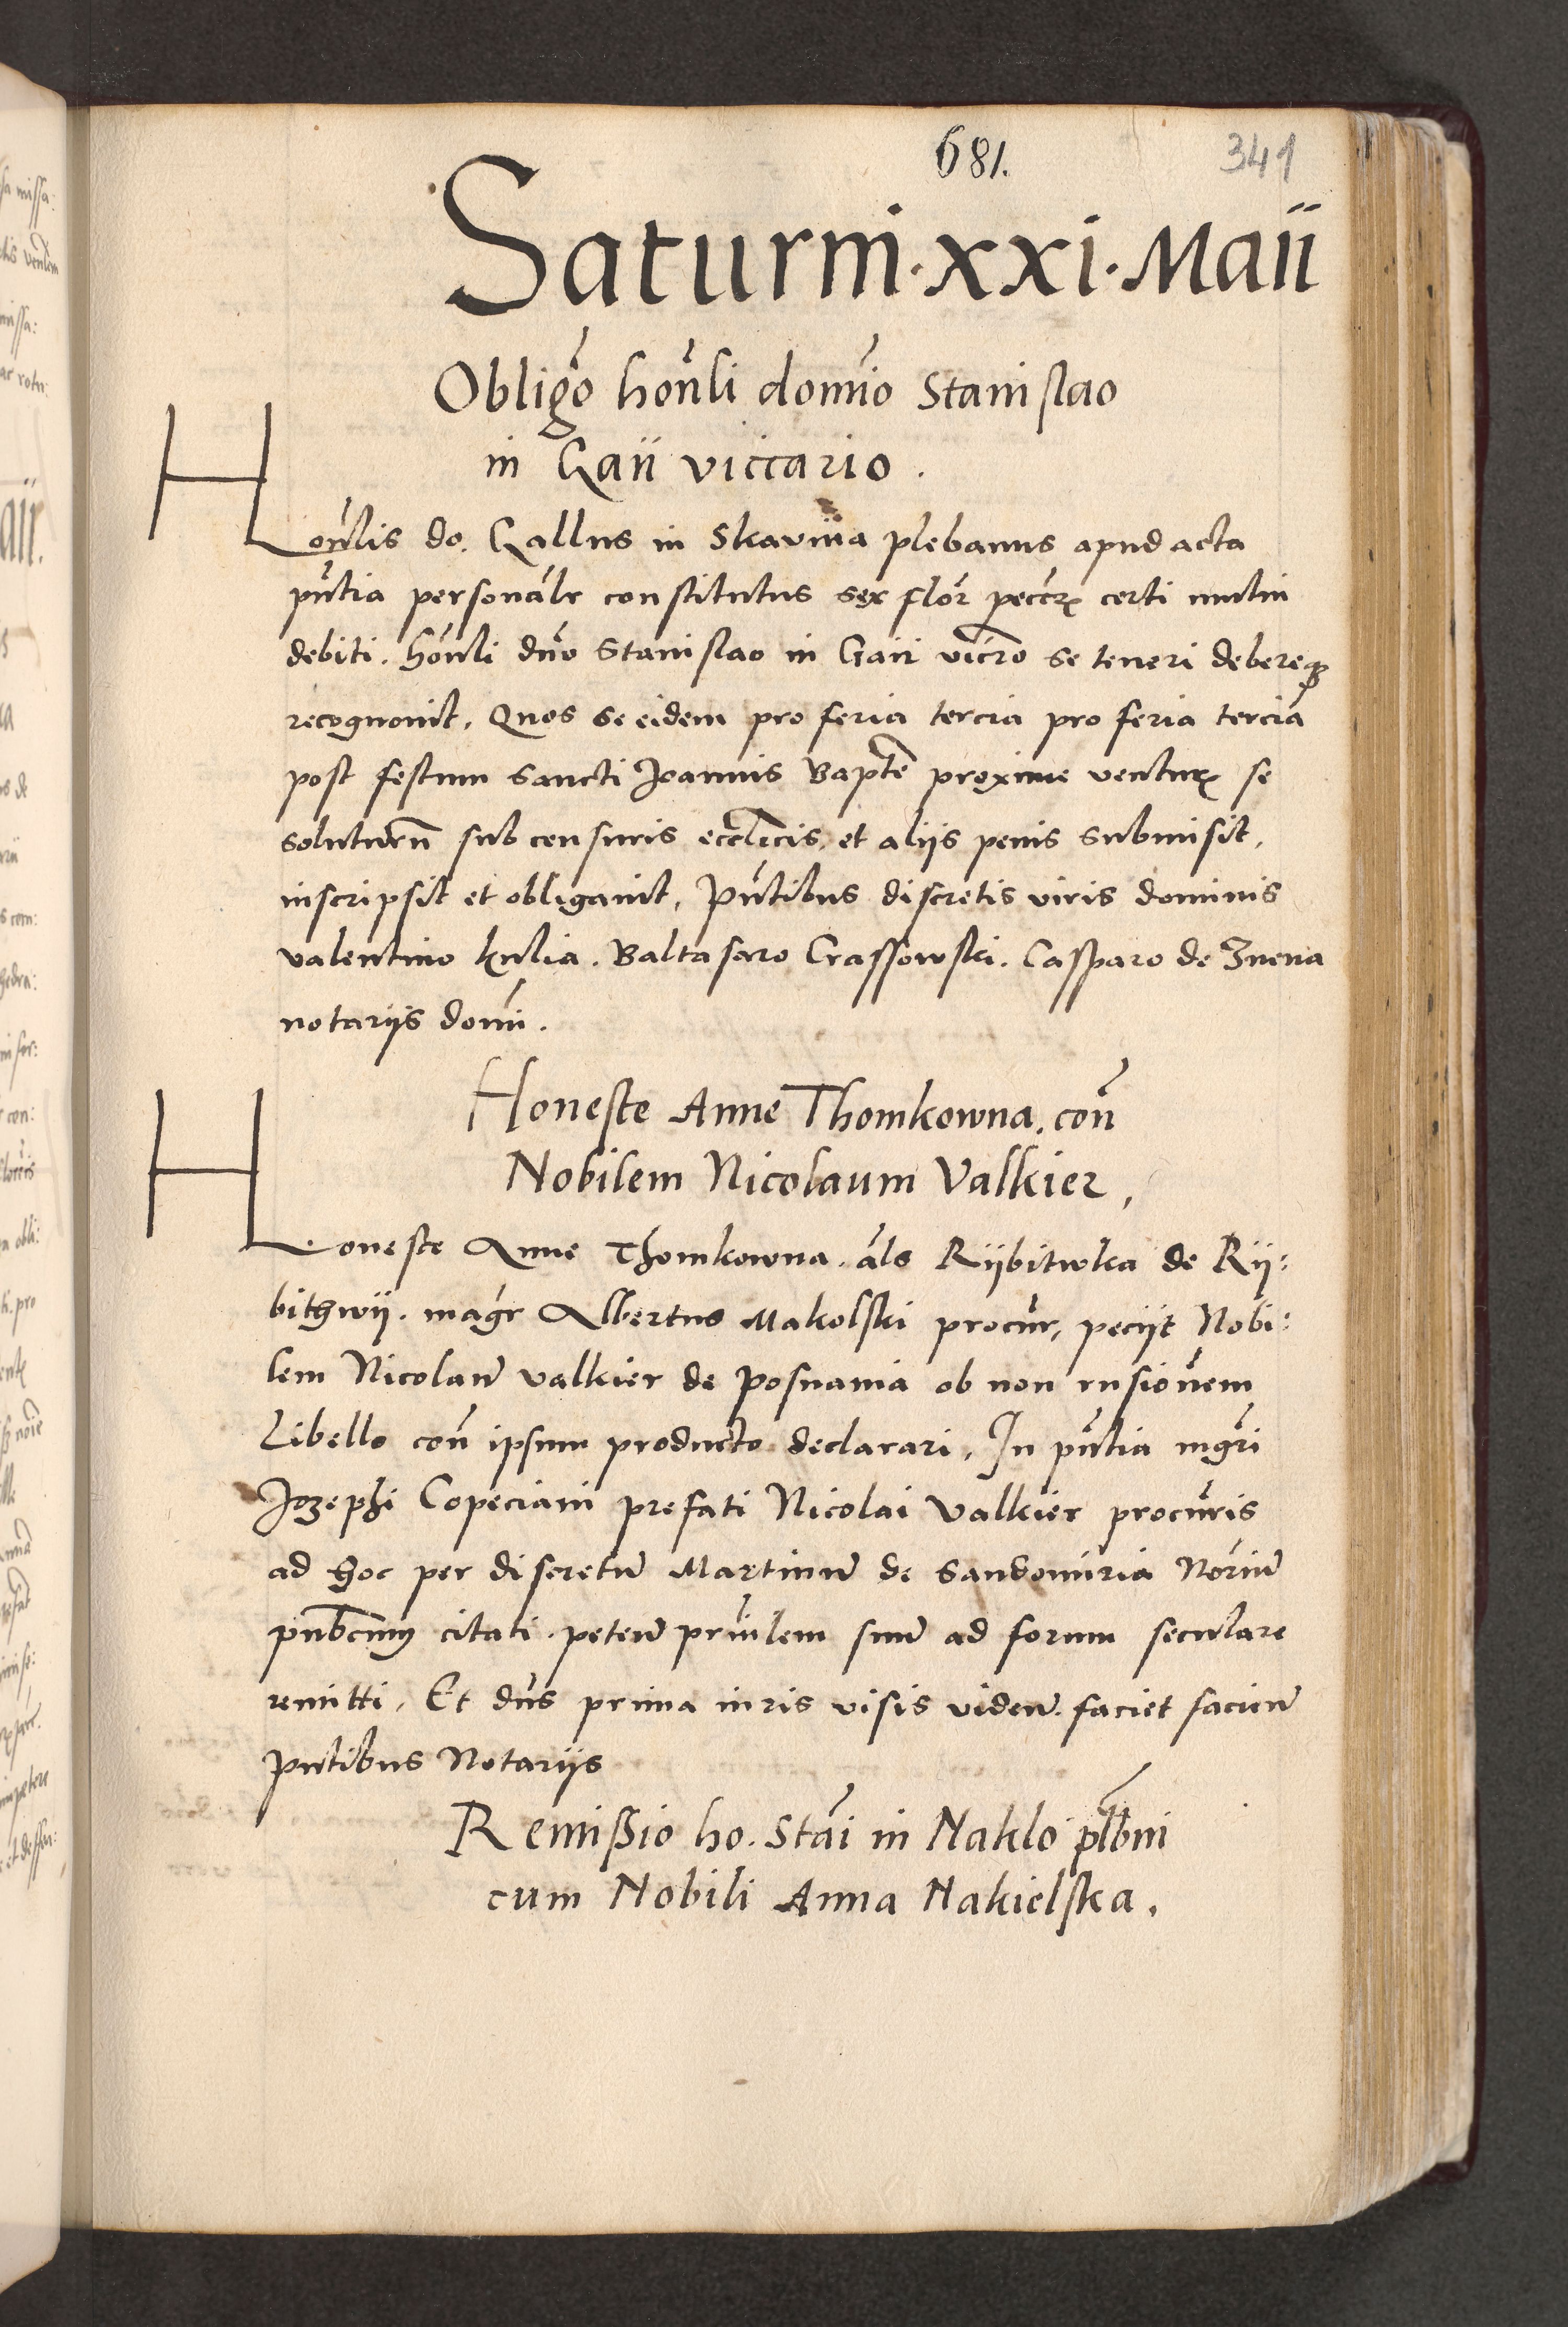 681.
341
Saturni · xxi · Maii
Obligõ honli domio Stanislao
in Gaii viccario.
Honlis do. Gallus in Skavina plebanus apud acta
pntia personalr constitutus sex flor peccr certi mutui
debiti. honli dno Stanislao in Gaii vicro se teneri debereqz
recognovit, Quos se eidem pro feria tercia pro feria tercia
post festum sancti Joannis Bapte proxime ventur se
soluturu sub censuris ecclicis, et aliis penis submisit,
inscripsit et obligavit, Pntibus discretis viris dominis
valentino kulia. Baltasaro Crassowski. Casparo de Znena
notariis domi.
Honeste Anne Thomkowna. con
Nobilem Nicolaum Valkier,
Honeste Anne Thomkowna. als Rijbitwka de Rij:
bithwij. magr Albertus Makolski procur, peciit Nobi:
lem Nicolau valkier de Posnania ob non rnsionem
Libello con ipsum producto declarari, In pntia mgri
Jozephi Copeciani prefati Nicolai Valkier procuris
ad hoc per discretu Martinu de Sandomiria Noriu
citati. peten privlem suu ad forum seculare
remitti, Et dns prima iuris visis viden. faciet facien
Pntibus Notariis
Remißio ho. Stai in Naklo plbni
cum Nobili Anna Nakielska.